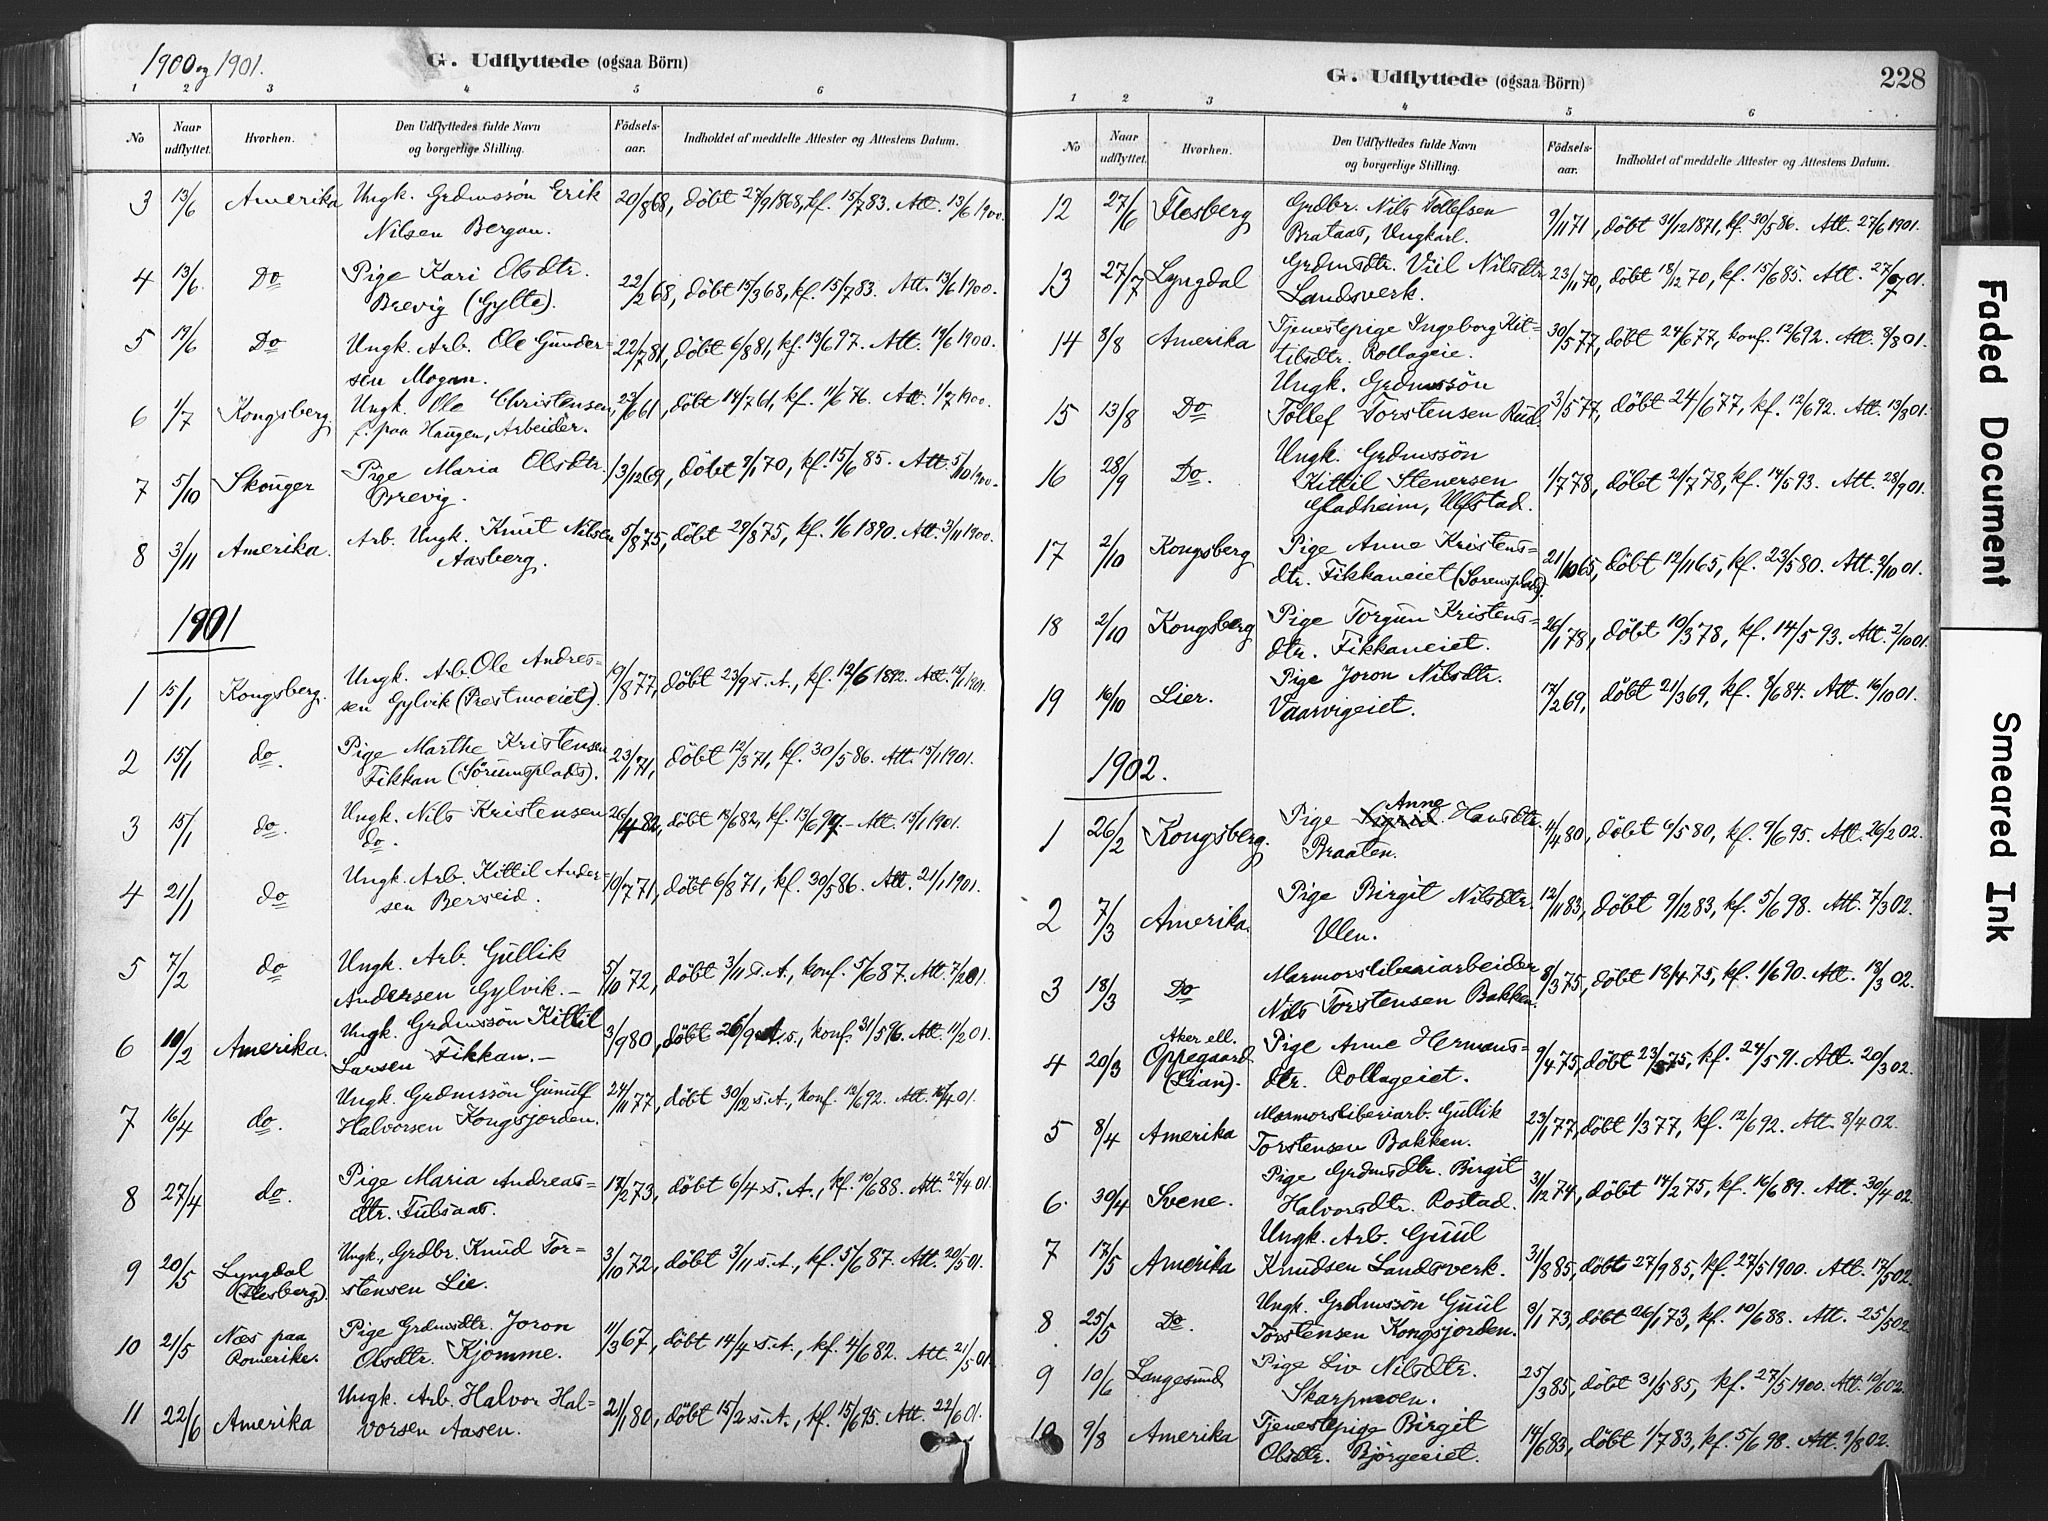 1900 og 1901.
G. Udflyttede (ogsaa Börn)
1 2 3 4 5 6
No
Naar udflyttet.
Hvorhen.
Den Udflyttedes fulde Navn og borgerlige Stilling.
Födsels-aar.
Indholdet af meddelte Attester og Attestens Datum.
3 13/6 Amerika Ungk. Grdmssön Erik 20/8 68, döbt 27/9 1868, kf. 15/7 83. Att. 13/6 1900.
Nilsen Bergan.
4 13/6 Do Pige Kari Olsdtr. 22/2 68, döbt 15/3 68, kf. 15/7 83. Att. 13/6 1900.
Brevig (Gylte).
5 19/6 Do Ungk. Arb. Ole Gunder- 22/7 81, döbt 6/8 81, kf. 13/6 97. Att. 19/6 1900.
sen Mogan.
6 1/7 Kongsberg Ungk. Ole Christensen, 23/6 61, döbt 14/7 61, kf. 11/6 76. Att. 1/7 1900.
f. paa Haugen, Arbeider.
7 5/10 Skouger Pige Maria Olsdtr. 13/12 69, döbt 9/1 70, kf. 15/6 85. Att. 5/10 1900.
Brevig.
8 3/11 Amerika. Arb. Ungk. Knut Nilsen 5/8 75, döbt 29/8 75, kf. 1/6 1890. Att. 3/11 1900.
Aasberg.
1901
1 15/1 Kongsberg. Ungk. Arb. Ole Andres- 19/8 77, döbt 23/9 s. A., kf. 12/6 1892. Att. 15/1 1901.
sen Gylvik (Prestmoeiet).
2 15/1 do. Pige Marthe Kristensen 23/1 71, döbt 12/3 71, kf. 30/5 86. Att. 15/1 1901.
Fikkan (Sörumsplads).
3 15/1 do. Ungk. Nils Kristensen 26/4 82, döbt 18/6 82, kf. 13/6 97. - Att. 15/1 1901.
do.
4 21/1 do Ungk. Arb. Kittil Ander- 10/7 71, döbt 6/8 71, kf. 30/5 86. Att. 21/1 1901.
sen Berseid.
5 7/2 do Ungk. Arb. Gullik 5/10 72, döbt 3/11 s. A., konf. 5/6 87. Att. 7/2 01.
Andersen Gylvik. -
6 10/2 Amerika. Ungk. Grdmssön Kittil 3/9 80, döbt 26/9 A. s., konf. 31/5 96. Att. 11/2 01.
Larsen Fikkan. -
7 16/4 do. Ungk. Grdmssön Gunulf 24/11 77, döbt 30/12 s. A., konf. 12/6 92. Att. 16/4 01.
Halvorsen Kongsjorden.
8 27/4 do. Pige Maria Andreas- 17/2 73, döbt 6/4 s. A., kf. 10/6 88. Att. 27/4 01.
dtr. Fulsaas.
9 20/5 Lyngdal (Flesberg). Ungk, Grdbr. Knud Tor- 3/10 72, döbt 3/11 s. A., kf. 5/6 87. Att. 20/5 01.
stensen Lie.
10 21/5 Næs paa Romerike. Pige Grdmsdtr. Joron 11/3 67, döbt 14/4 s. A., kf. 4/6 82. Att. 21/5 01.
Olsdtr. Kjomme.
11 22/6 Amerika Ungk. Arb. Halvor Hal- 21/1 80, döbt 15/2 s. A., kf. 15/6 95. Att. 22/6 01.
vorsen Aasen.
G. Udflyttede (ogsaa Börn)
228
1 2 3 4 5 6
No
Naar udflyttet.
Hvorhen.
Den Udflyttedes fulde Navn og borgerlige Stilling.
Födsels-aar.
Indholdet af meddelte Attester og Attestens Datum.
12 27/6 Flesberg Grdbr. Nils Tollefsen 9/11 71, döbt 31/12 1871, kf. 30/5 86. Att. 27/6 1901.
Brataas, Ungkarl.
13 27/7 Lyngdal Grdmsdtr. Viil Nilsdtr. 23/11 70, döbt 18/12 70, kf. 15/6 85. Att. 27/7 01.
Landsverk.
14 8/8 Amerika Tjenestepige Ingeborg Kit- 30/5 77, döbt 24/6 77, konf. 12/6 92. Att. 8/8 01.
tilsdtr. Rollageie.
Ungk. Grdmssön
15 13/8 Do Tollef Torstensen Rud. 3/5 77, döbt 24/6 77, kf. 12/6 92. Att. 13/8 01.
Ungk. Grdmssön
16 28/9 Do. Kittil Stenersen 1/7 78, döbt 21/7 78, kf. 14/5 93. Att. 28/9 01.
Gladheim, Ulfstad.
17 2/10 Kongsberg Pige Anne Kristens- 21/10 65, döbt 12/11 65, kf. 23/5 80. Att. 2/10 01.
dtr. Fikkaneiet (Sorensplads).
18 2/10 Kongsberg Pige Torgun Kristens- 26/1 78, döbt 10/3 78, kf. 14/5 93. Att. 2/10 01.
dtr. Fikkaneiet.
19 16/10 Lier. Pige Joron Nilsdtr. 17/2 69, döbt 21/3 69, kf. 8/6 84. Att. 16/10 01.
Vaarvigeiet.
1902.
Anne
1 26/2 Kongsberg. Pige Sigrid Hansdtr. 4/4 80, döbt 6/5 80, kf. 9/6 95. Att. 26/2 02.
Braaten.
2 7/3 Amerika. Pige Birgit Nilsdtr. 12/11 83, döbt 9/12 83, kf. 5/6 98. Att. 7/3 02.
Ulen.
3 18/3 Do Marmorsliberiarbeider 8/3 75, döbt 18/4 75, kf. 1/6 90. Att. 18/3 02.
Nils Torstensen Bakken.
4 20/3 Aker ell. Oppegaard (Lian). Pige Anne Hermans- 9/4 75, döbt 23/5 75, kf. 24/5 91. Att. 20/3 02.
dtr. Rollageiet.
5 8/4 Amerika Marmorsliberiarb. Gullik 23/1 77, döbt 1/3 77, kf. 12/6 92. Att. 8/4 02.
Torstensen Bakken.
6. 30/4 Svene. Pige Grdmsdtr. Birgit 31/12 74, döbt 14/2 75, kf. 16/6 89. Att. 30/4 02.
Halvorsdtr. Rostad.
7 17/5 Amerika Ungk. Arb. Guul 31/8 85, döbt 27/9 85, kf. 27/5 1900. Att. 17/5 02.
Knudsen Landsverk.
8 25/5 Do. Ungk. Grdmssön Guul 3/1 73, döbt 26/1 73, kf. 10/6 88. Att. 25/5 02.
Torstensen Kongsjorden.
9 10/6 Langesund Pige Liv Nilsdtr. 25/3 85, döbt 31/5 85, kf. 27/5 1900. Att. 10/6 02.
Skarpmoen.
10 9/8 Amerika Tjenestepige Birgit 14/6 83, döbt 1/7 83, kf. 5/6 98. Att. 9/8 02.
Olsdtr. Björgeeiet.
Faded Document
Smeared Ink